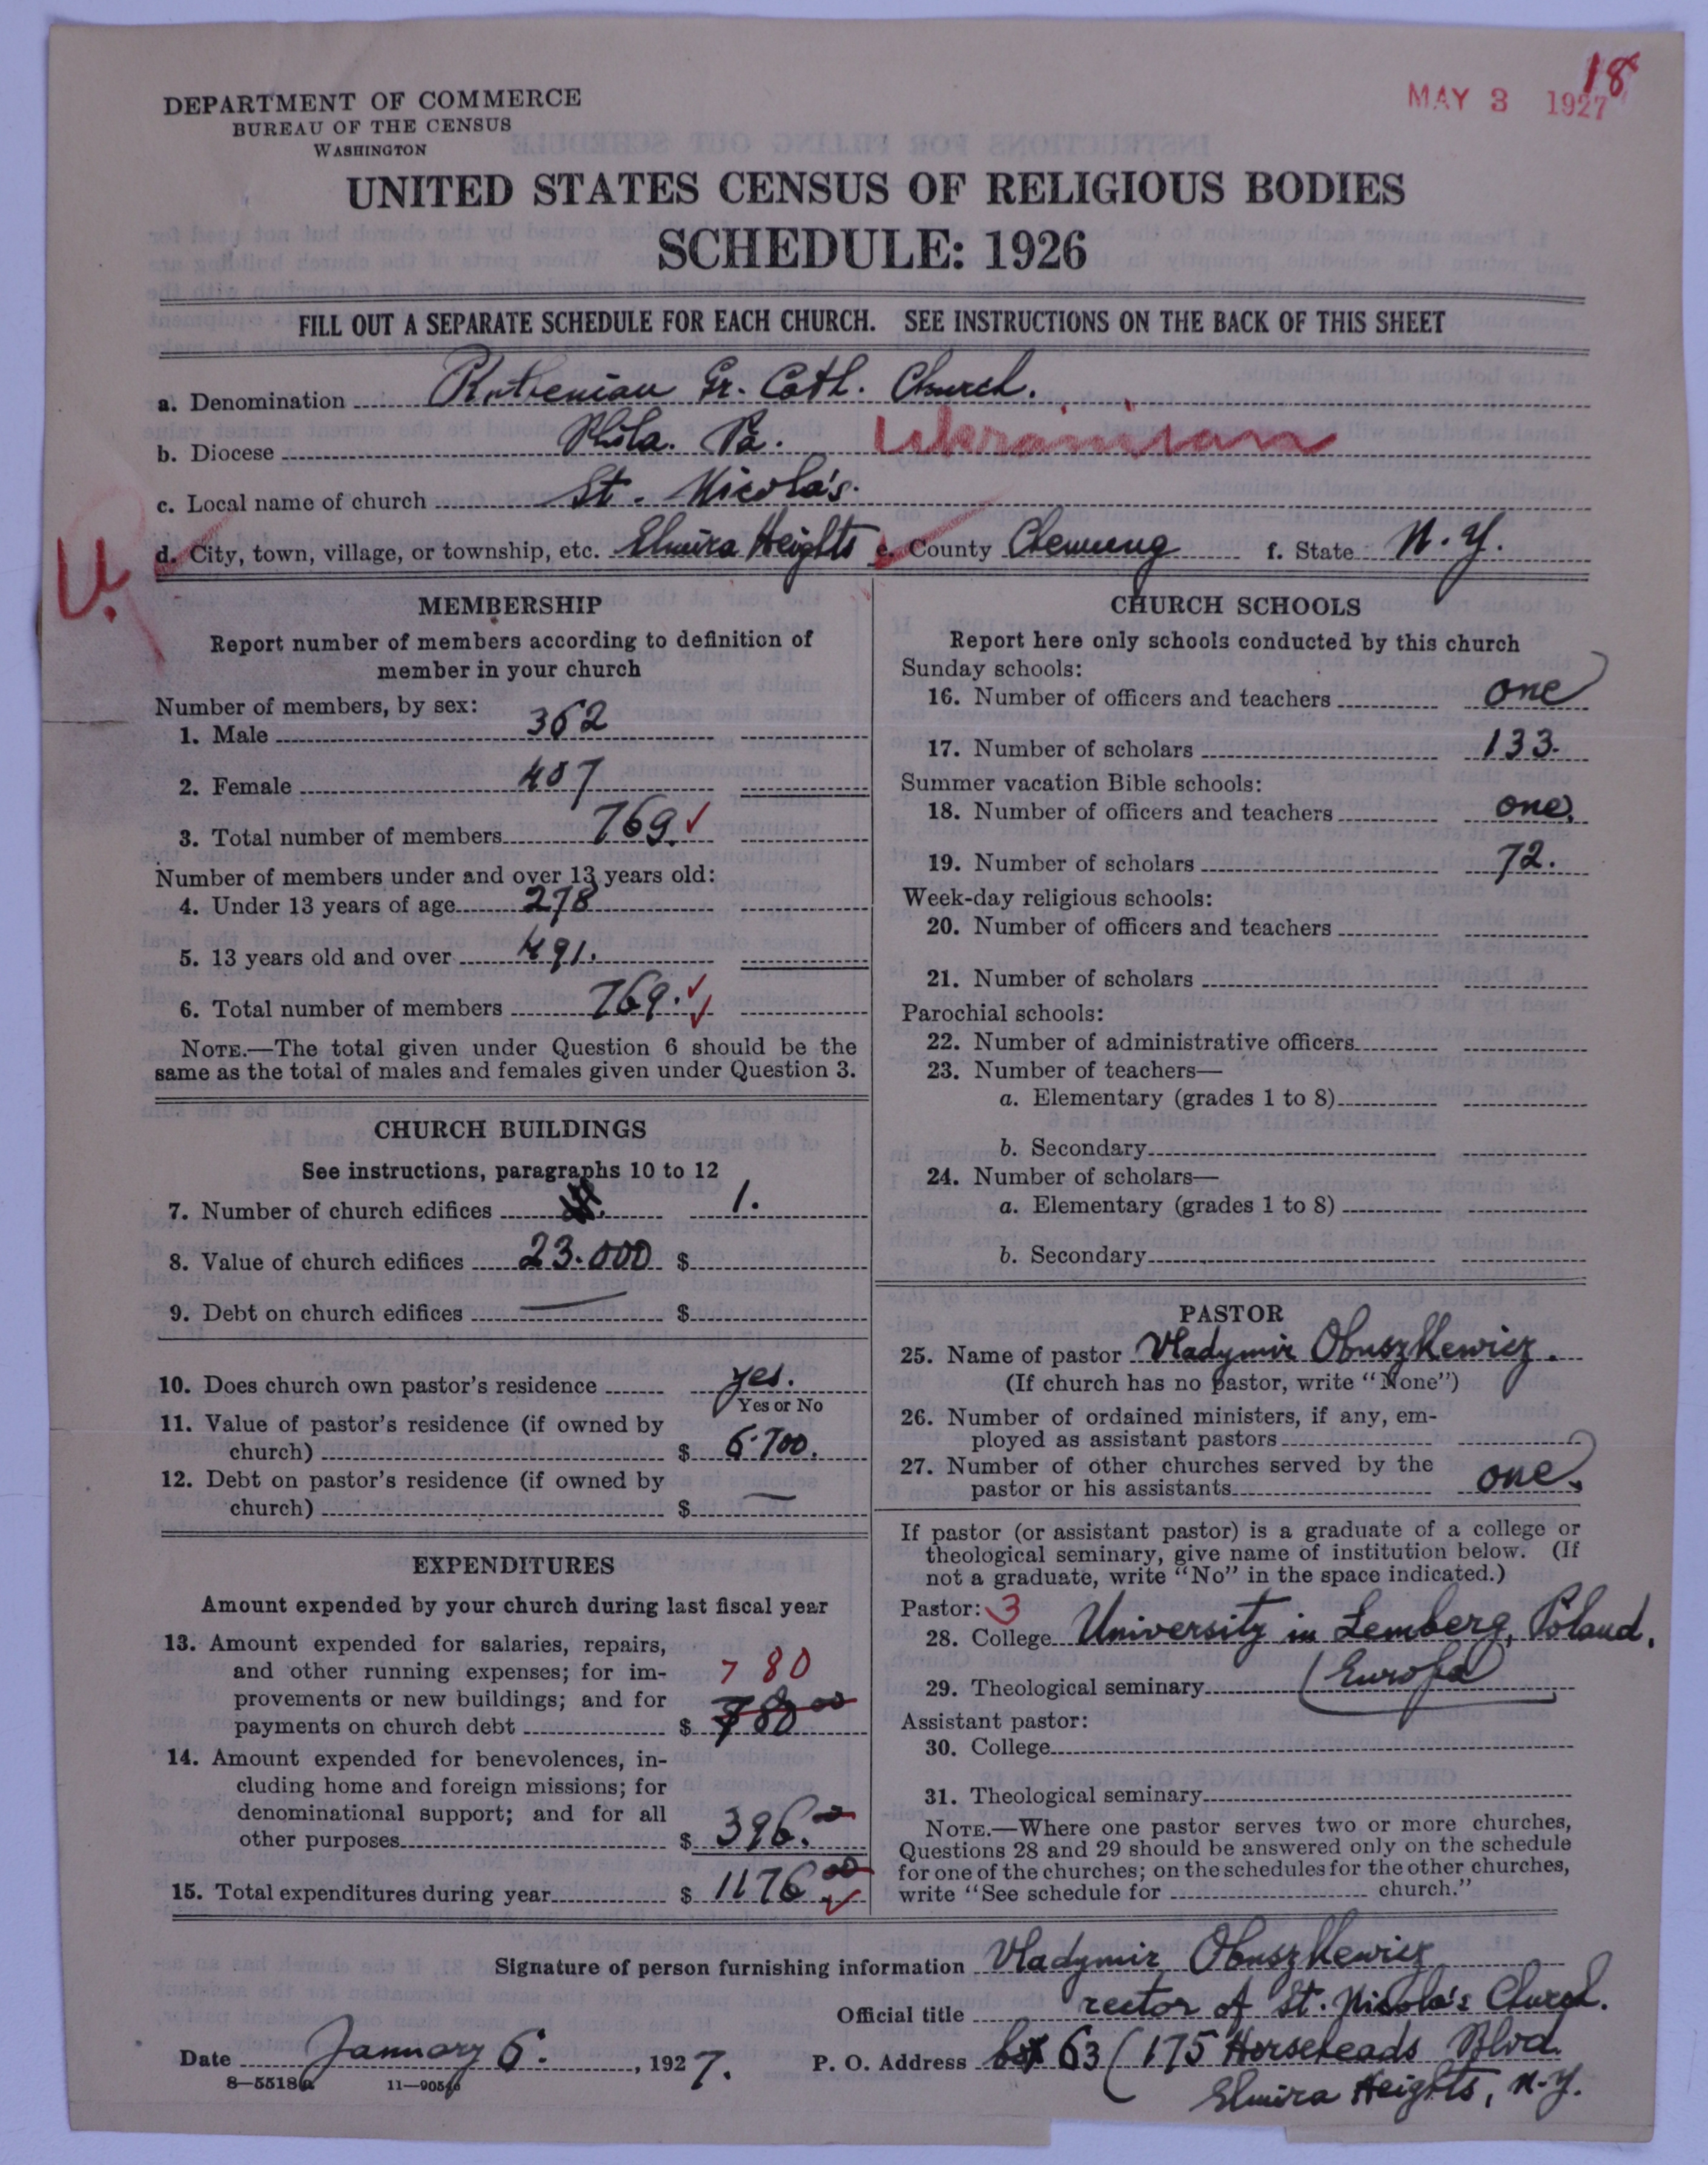 18
MAY 3 1927
DEPARTMENT OF COMMERCE
BUREAU OF THE CENSUS
WASHINGTON
UNITED STATES CENSUS OF RELIGIOUS BODIES
SCHEDULE: 1926
FILL OUT A SEPARATE SCHEDULE FOR EACH CHURCH. SEE INSTRUCTIONS ON THE BACK OF THIS SHEET
a. Denomination Ruthenian Gr. Cath. Church.
b. Diocese Phila. Pa. Ukrainian
c. Local name of church St. Nicola's.
U. d. City, town, village, or township, etc. Elmira Heights e. County Chemung f. State N.Y.
MEMBERSHIP
Report number of members according to definition of
member in your church
Number of members, by sex:
1. Male 362
2. Female 407
3. Total number of members 769. ✓
Number of members under and over 13 years old:
4. Under 13 years of age 278
5. 13 years old and over 491.
6. Total number of members 769. ✓✓
NOTE.—The total given under Question 6 should be the
same as the total of males and females given under Question 3.
CHURCH BUILDINGS
See instructions, paragraphs 10 to 12
7. Number of church edifices 1.
8. Value of church edifices 23.000 $
9. Debt on church edifices — $
10. Does church own pastor's residence yes.
Yes or No
11. Value of pastor's residence (if owned by
church) $ 6.700.
12. Debt on pastor's residence (if owned by
church) $ —
EXPENDITURES
Amount expended by your church during last fiscal year
13. Amount expended for salaries, repairs,
and other running expenses; for im- 780
provements or new buildings; and for
payments on church debt $ 780 00
14. Amount expended for benevolences, in-
cluding home and foreign missions; for
denominational support; and for all
other purposes $ 396.00
15. Total expenditures during year $ 1176.00 ✓
CHURCH SCHOOLS
Report here only schools conducted by this church
Sunday schools:
16. Number of officers and teachers one
17. Number of scholars 133.
Summer vacation Bible schools:
18. Number of officers and teachers one.
19. Number of scholars 72.
Week-day religious schools:
20. Number of officers and teachers
21. Number of scholars
Parochial schools:
22. Number of administrative officers
23. Number of teachers—
a. Elementary (grades 1 to 8)
b. Secondary
24. Number of scholars—
a. Elementary (grades 1 to 8)
b. Secondary
PASTOR
25. Name of pastor Vladymir Obuszkewicz.
(If church has no pastor, write "None")
26. Number of ordained ministers, if any, em-
ployed as assistant pastors
27. Number of other churches served by the
pastor or his assistants one.
If pastor (or assistant pastor) is a graduate of a college or
theological seminary, give name of institution below. (If
not a graduate, write "No" in the space indicated.)
Pastor: 3
28. College University in Lemberg, Poland.
29. Theological seminary (Europa
Assistant pastor:
30. College
31. Theological seminary
NOTE.—Where one pastor serves two or more churches,
Questions 28 and 29 should be answered only on the schedule
for one of the churches; on the schedules for the other churches,
write "See schedule for church."
Signature of person furnishing information Vladymir Obuszkewicz
Official title rector of St. Nicola's Church.
Date January 6. , 1927. P. O. Address box 63 (175 Horseheads Blvd.
8—5518a 11—9054 Elmira Heights, N.Y.